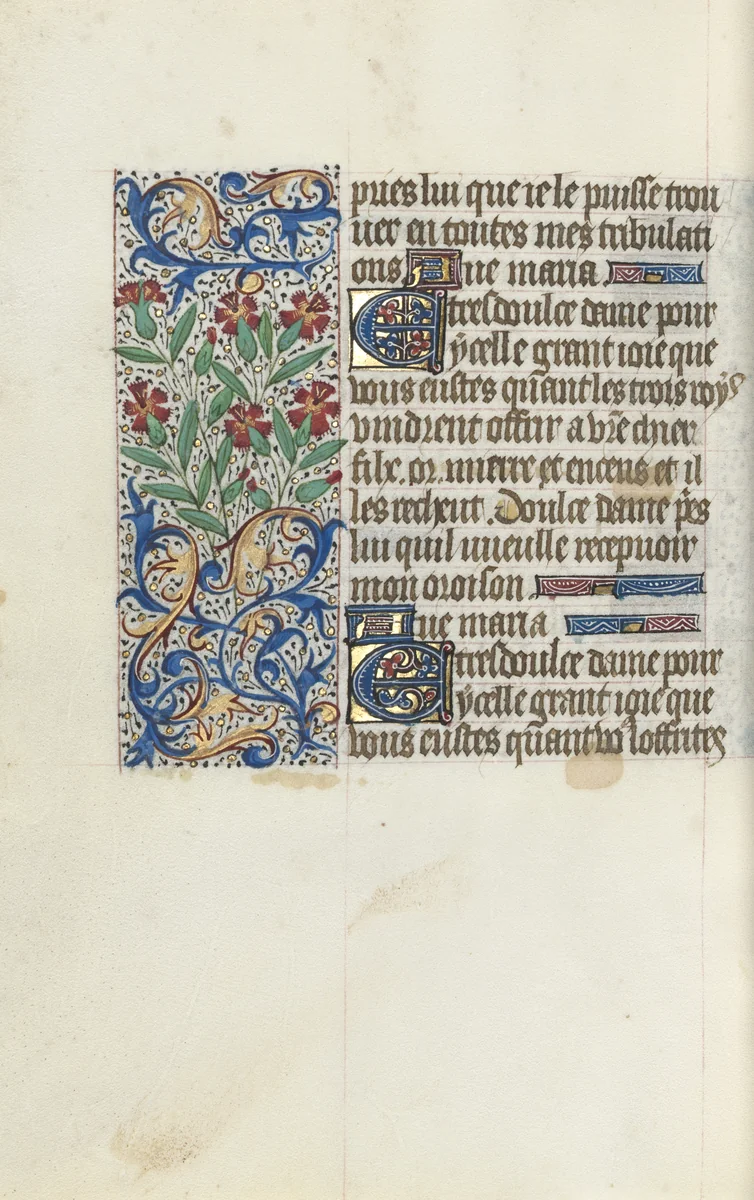 pries lui que ie le puisse trou
uer en toutes mes tribulati
ons Aue maria
E tresdoulce dame pour
ycelle grant ioie que
vous eustes quant les trois roys
vindrent offrir a vr̄e chier
filx. or. mierre et encens et il
les recheut. Doulce dame p̄es
lui quil vueille recepuoir
mon oroison
Aue maria
E tresdoulce dame pour
ycelle grant ioie que
vous eustes quant vo⁹ loffrites